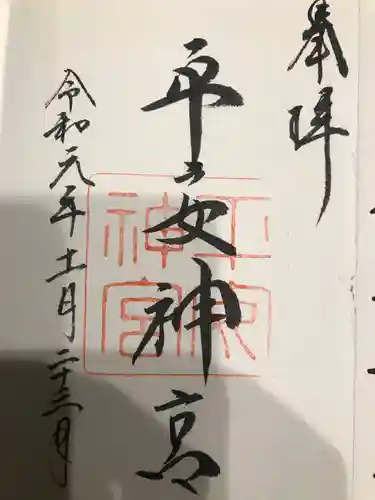 奉拝
平安神宮
令和元年十一月二十三日
平安
神宮